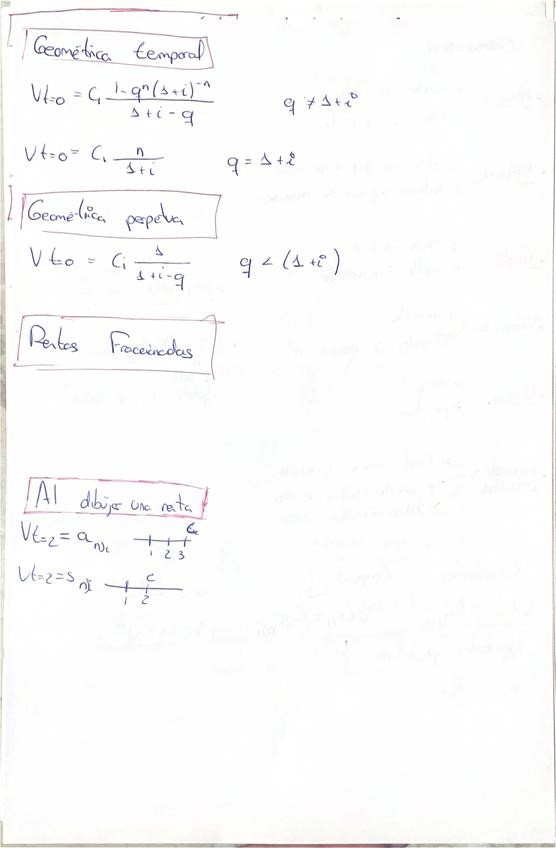 Geométrica temporal
Vt=0 = C₁ (1-qⁿ(1+i)⁻ⁿ)/(1+i-q) q ≠ 1+i
Vt=0 = C₁ n/(1+i) q = 1+i
Geométrica perpetua
Vt=0 = C₁ 1/(1+i-q) q < (1+i)
Rentas Fraccionadas
Al dibujar una renta
Vt=2 = a n⌉i
1 2 3
Vt=2 = s n⌉i C
1 2